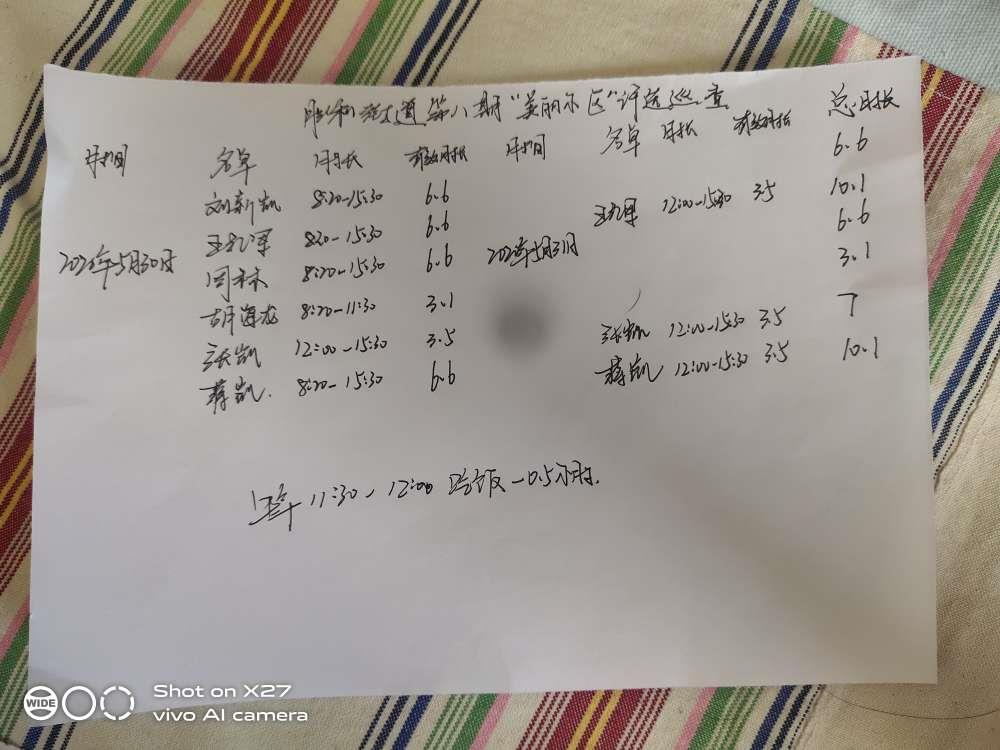 街道第八期"美丽小区"评选巡查
时间 名单 时长 有效时长 时间 名单 时长 有效时长 总时长
刘新凯 8:20-15:30 6.6 6.6
王礼军 8:20-15:30 6.6 王礼军 12:00-15:30 3.5 10.1
2020年5月30日 周林 8:20-15:30 6.6 2020年5月31日 6.6
胡海龙 8:20-11:30 3.1 3.1
张凯 12:00-15:30 3.5 张凯 12:00-15:30 3.5 7
蒋凯 8:20-15:30 6.6 蒋凯 12:00-15:30 3.5 10.1
11:30-12:00 吃饭-0.5小时.
WIDE
Shot on X27
vivo AI camera